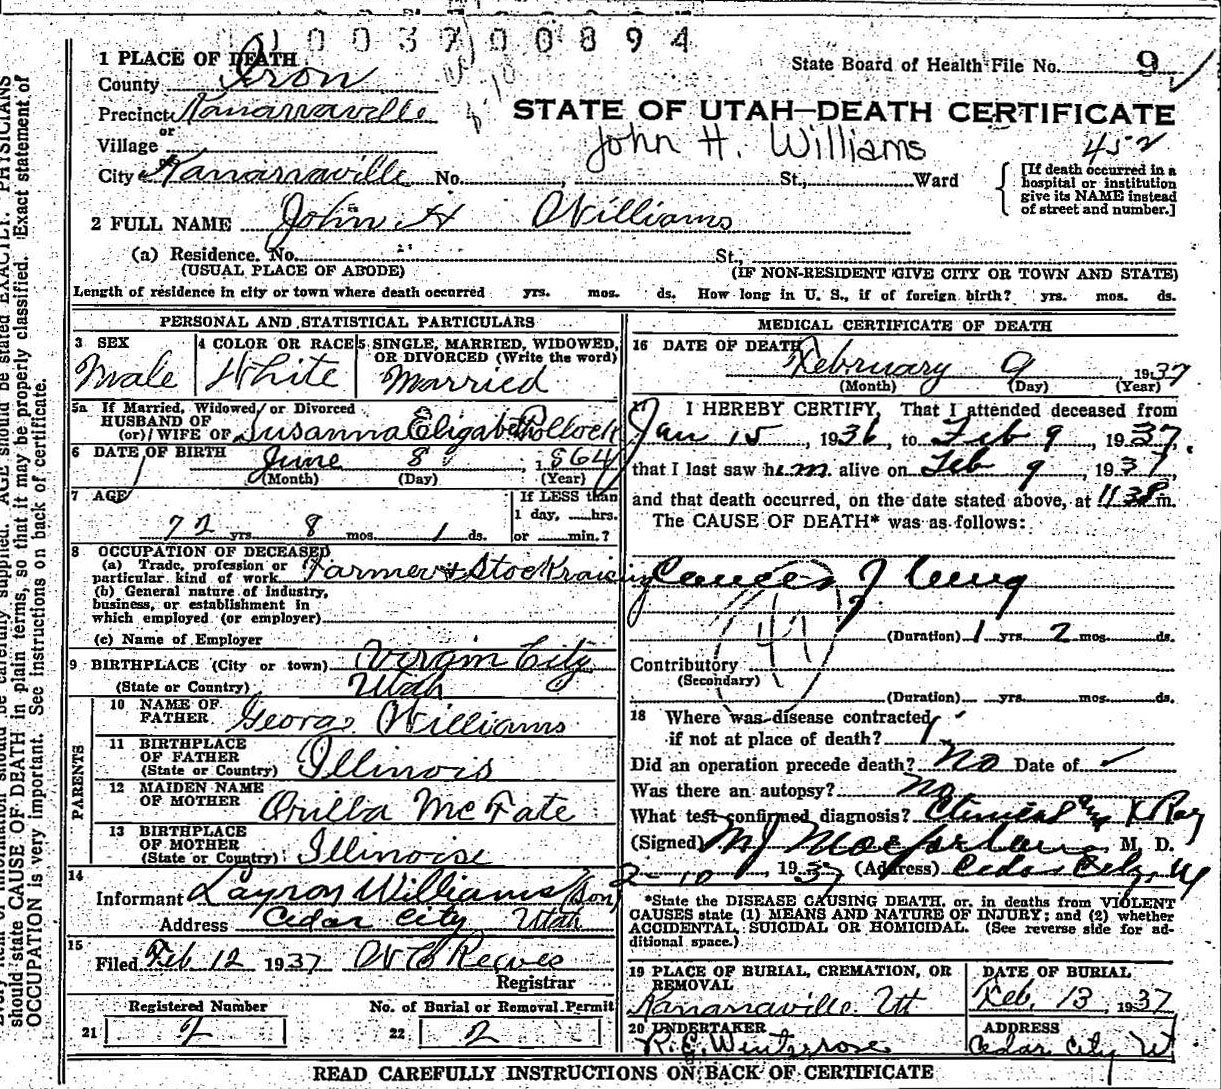 1003700894
1 PLACE OF DEATH
State Board of Health File No. 9
County Iron
Precinct Kanarraville
STATE OF UTAH—DEATH CERTIFICATE
or
Village
John H. Williams
452
City Kanarraville No. St., Ward
[If death occurred in a hospital or institution give its NAME instead of street and number.]
2 FULL NAME John H Williams
(a) Residence. No. St.,
(USUAL PLACE OF ABODE) (IF NON-RESIDENT GIVE CITY OR TOWN AND STATE)
Length of residence in city or town where death occurred yrs. mos. ds. How long in U. S., if of foreign birth? yrs. mos. ds.
PERSONAL AND STATISTICAL PARTICULARS
3 SEX 4 COLOR OR RACE 5 SINGLE, MARRIED, WIDOWED,
OR DIVORCED (Write the word)
Male White Married
5a If Married, Widowed, or Divorced
HUSBAND OF
(or) WIFE OF Susanna Elizabeth Pollock
6 DATE OF BIRTH June 8, 1864
(Month) (Day) (Year)
7 AGE If LESS than
1 day, hrs.
72 yrs. 8 mos. 1 ds. or min.?
8 OCCUPATION OF DECEASED
(a) Trade, profession or
particular kind of work Farmer & Stockraising
(b) General nature of industry,
business, or establishment in
which employed (or employer)
(c) Name of Employer
9 BIRTHPLACE (City or town) Virgin City
(State or Country) Utah
PARENTS
10 NAME OF
FATHER George Williams
11 BIRTHPLACE
OF FATHER
(State or Country) Illinois
12 MAIDEN NAME
OF MOTHER Orilla McFate
13 BIRTHPLACE
OF MOTHER
(State or Country) Illinoise
14
Informant Layron Williams (Son)
Address Cedar City Utah
15
Filed Feb 12 1937 W C Reeves
Registrar
Registered Number No. of Burial or Removal Permit
21 2 22 2
MEDICAL CERTIFICATE OF DEATH
16 DATE OF DEATH
February 9 1937
(Month) (Day) (Year)
17 I HEREBY CERTIFY, That I attended deceased from
Jan 15, 1936, to Feb 9, 1937,
that I last saw him alive on Feb 9, 1937,
and that death occurred, on the date stated above, at 1138 P m.
The CAUSE OF DEATH* was as follows:
Cancer of Lung
47
(Duration) 1 yrs. 2 mos. ds.
Contributory
(Secondary)
(Duration) yrs. mos. ds.
18 Where was disease contracted
if not at place of death?
Did an operation precede death? No Date of
Was there an autopsy? No
What test confirmed diagnosis? Clinical X Ray
(Signed) M J Macfarlane, M. D.
2-10 1937 (Address) Cedar City, Ut
*State the DISEASE CAUSING DEATH, or, in deaths from VIOLENT
CAUSES state (1) MEANS AND NATURE OF INJURY; and (2) whether
ACCIDENTAL, SUICIDAL OR HOMICIDAL. (See reverse side for ad-
ditional space.)
19 PLACE OF BURIAL, CREMATION, OR
REMOVAL
Kanarraville Ut
DATE OF BURIAL
Feb. 13 1937
20 UNDERTAKER
R. E. Winterose
ADDRESS
Cedar City Ut
READ CAREFULLY INSTRUCTIONS ON BACK OF CERTIFICATE
should be carefully supplied. AGE should be stated EXACTLY. PHYSICIANS
should state CAUSE OF DEATH in plain terms, so that it may be properly classified. Exact statement of
OCCUPATION is very important. See instructions on back of certificate.